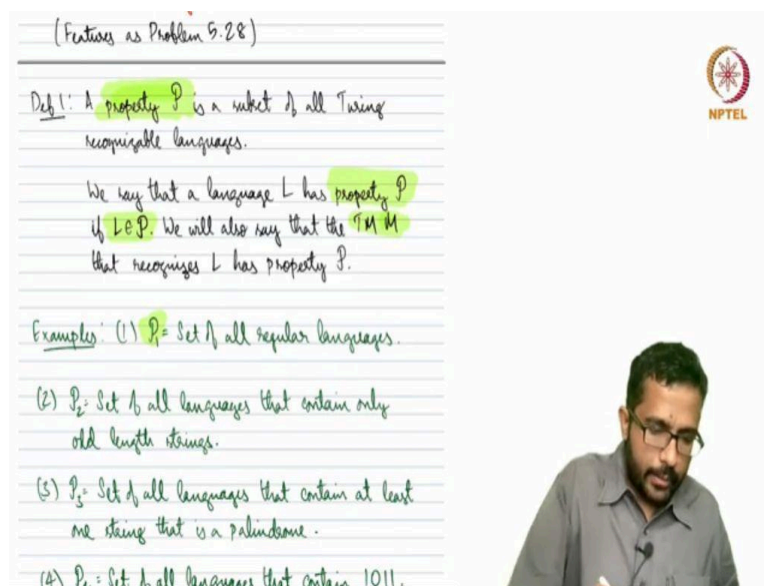 (Features as Problem 5.28)
NPTEL
Def 1: A property P is a subset of all Turing
recognizable languages.
We say that a language L has property P
if L∈P. We will also say that the TM M
that recognizes L has property P.
Examples: (1) P₁ = Set of all regular languages.
(2) P₂ = Set of all languages that contain only
odd length strings.
(3) P₃ = Set of all languages that contain at least
one string that is a palindrome.
(4) P₄ = Set of all languages that contain 1011.